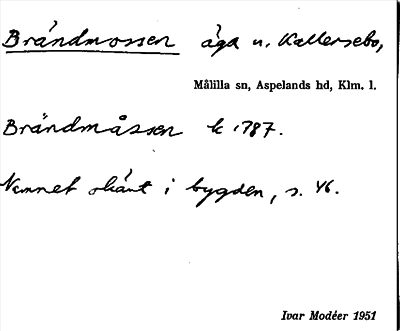 Brändmossen äga u. Kallersebo,
Målilla sn, Aspelands hd, Klm. l.
Brändmåssen k 1787.
Namnet okänt i bygden, s. 46.
Ivar Modéer 1951